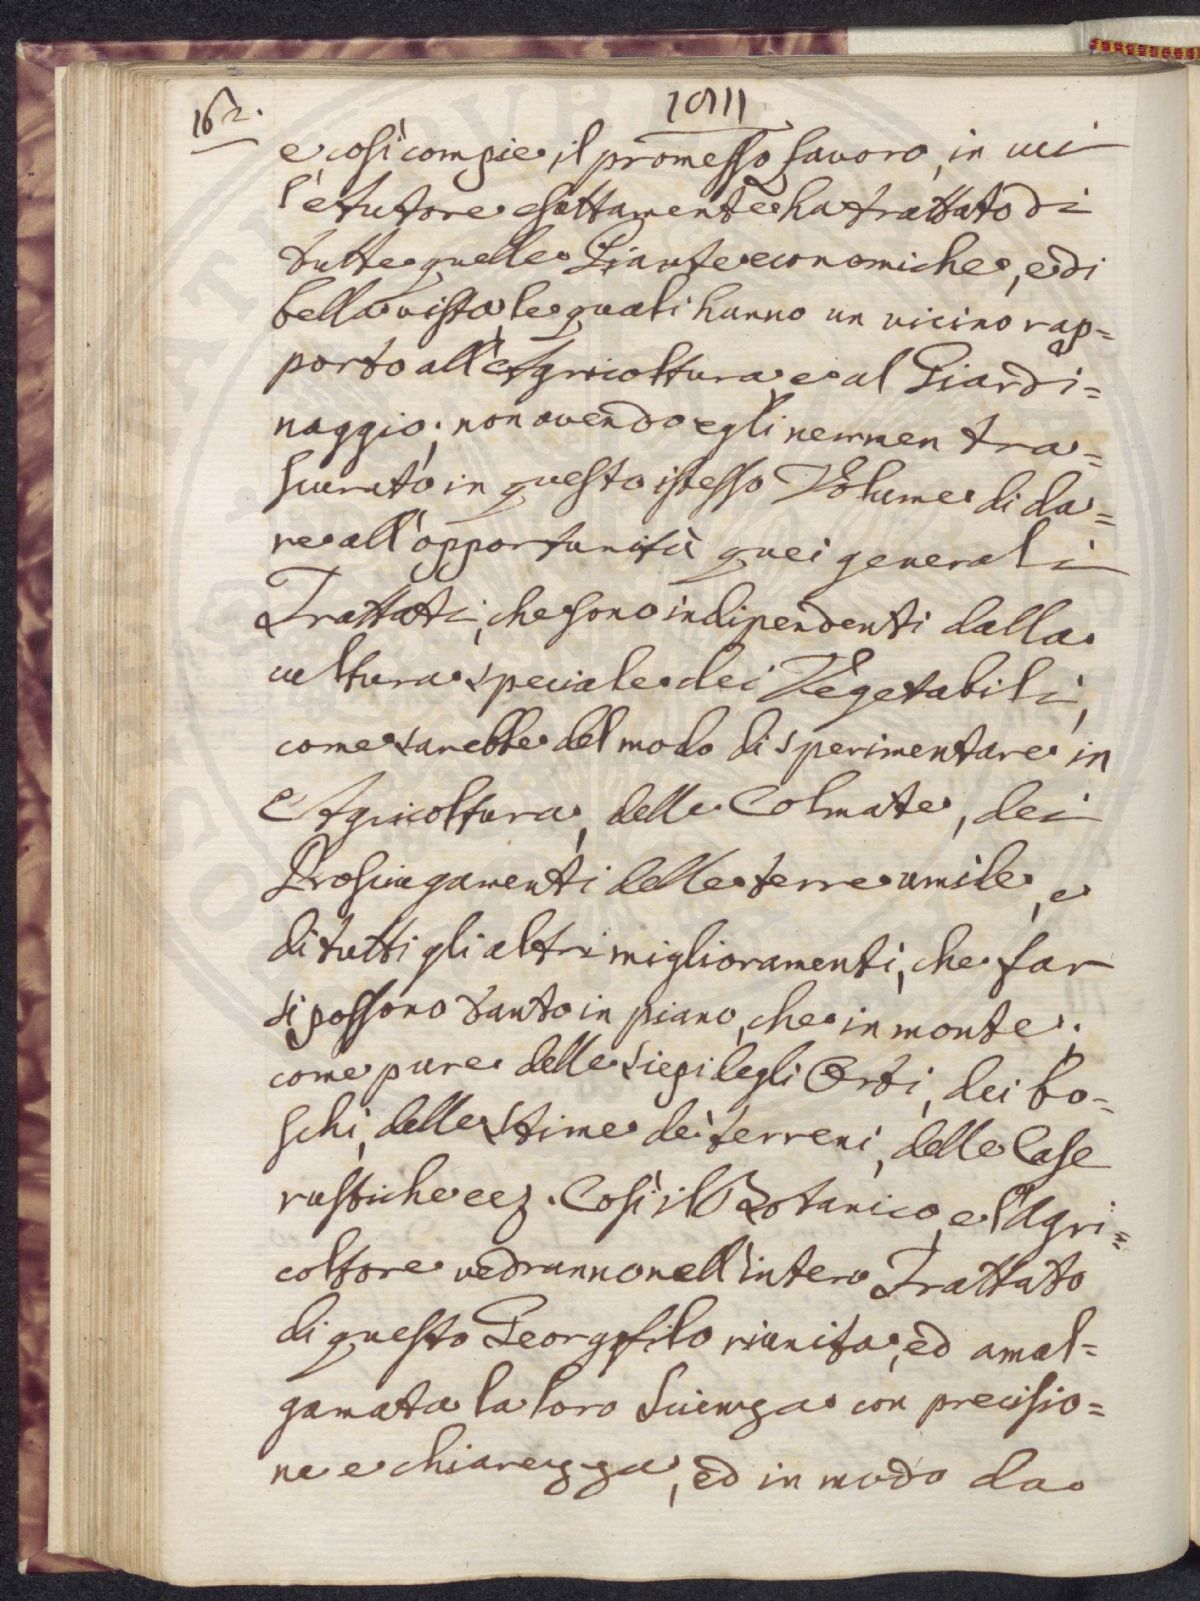 162.
1811
e così compie il promesso lavoro, in cui
l'Autore esattamente ha trattato di
tutte quelle Piante economiche, e di
bella vista, le quali hanno un vicino rap=
porto all'Agricoltura, e al Giardi=
naggio; non avendo egli nemmen tra=
scurato in questo istesso Volume di da=
re all'opportunità quei generali
Trattati, che sono indipendenti dalla
cultura speciale dei Vegetabili,
come sarebbe del modo di sperimentare in
Agricoltura, delle Colmate, dei
Prosciugamenti delle terre umide, e
di tutti gli altri miglioramenti, che far
si possono tanto in piano, che in monte;
come pure delle siepi degli Orti, dei bo=
schi, delle Stime de' terreni, delle Case
rustiche ecc. Così il Botanico, e l'Agri=
coltore vedranno nell'intero Trattato
di questo Georgofilo riunita, ed amal=
gamata la loro Scienza con precisio=
ne e chiarezza, ed in modo da